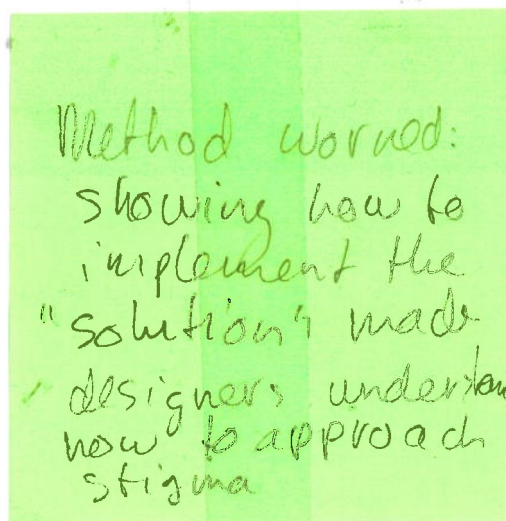 Method worked:
showing how to
implement the
"solution" made
designers understan
how to approach
stigma